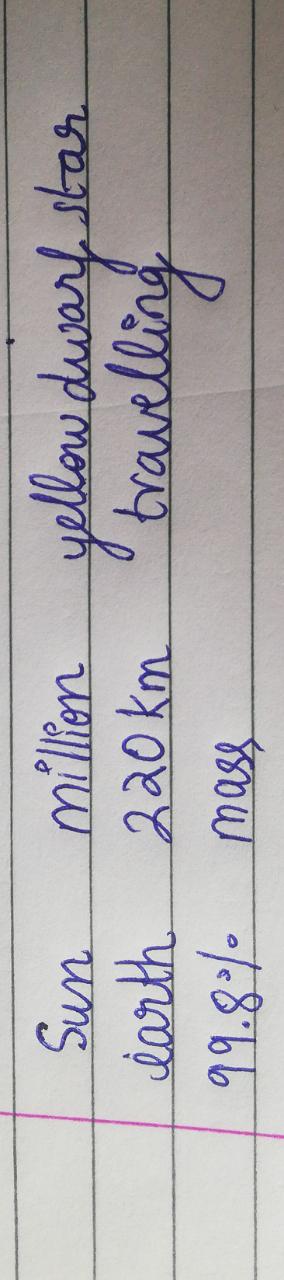 Sun million yellow dwarf star
earth 220 km travelling
99.8% mass